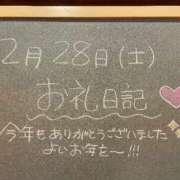 2月28日(土)
お礼日記
今年もありがとうございました
よいお年を〜!!!